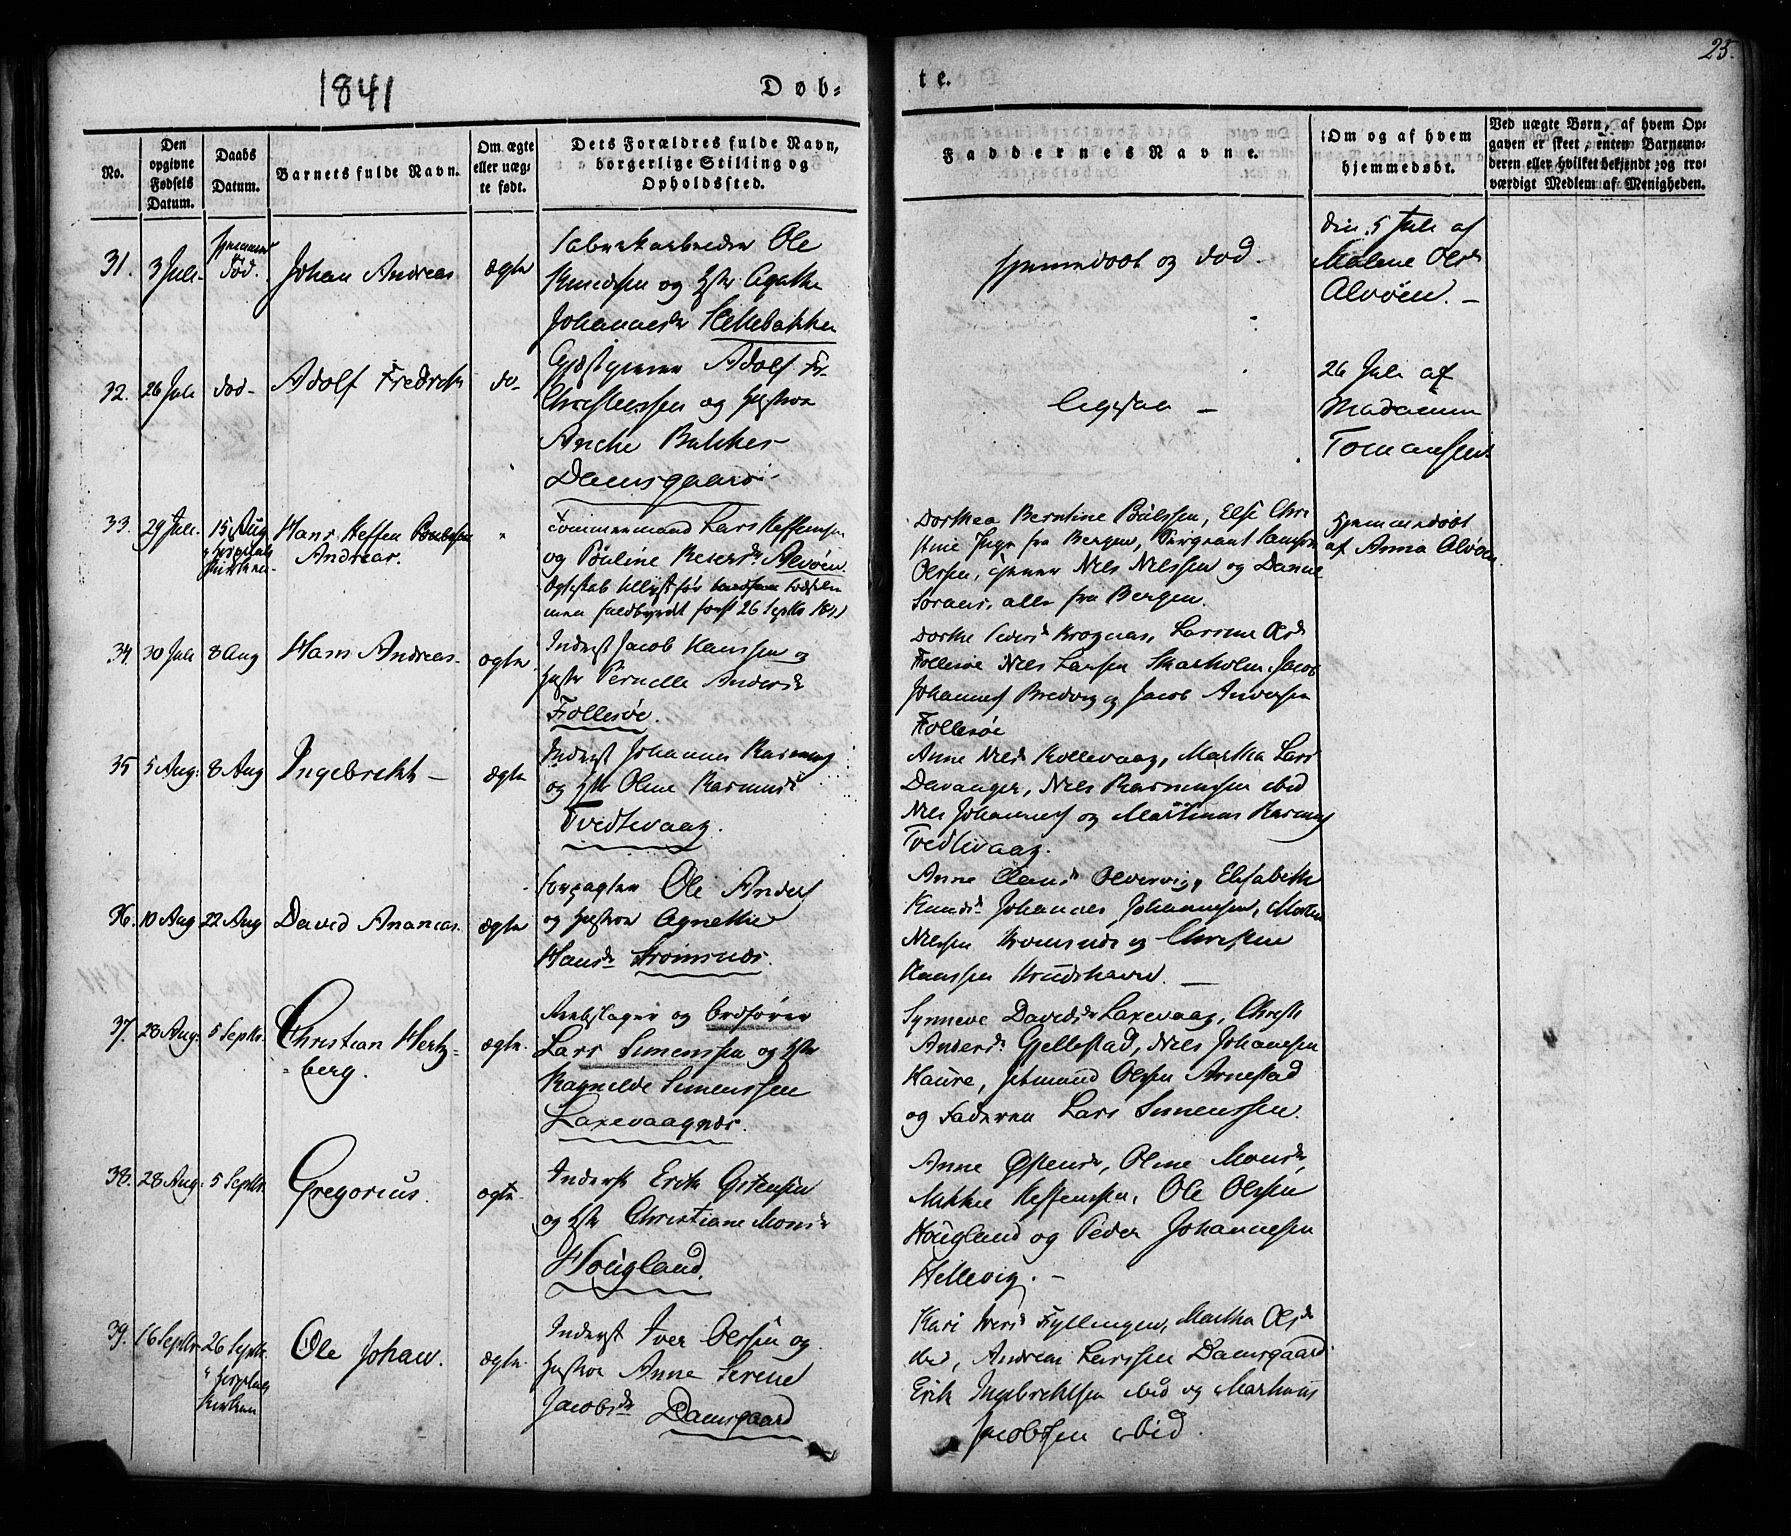 25.
1841
Døb-
te.
No.
Den opgivne Fødsels Datum.
Daabs Datum.
Barnets fulde Navn.
Om ægte eller uæg-te født.
Dets Forældres fulde Navn, borgerlige Stilling og Opholdssted.
Faddernes Navne.
Om og af hvem hjemmedøbt.
Ved uægte Børn, af hvem Op-
gaven er skeet, enten Barnemo-
deren eller hvilket bekjendt og tro-
værdigt Medlem af Menigheden.
31. 3 Juli død. Johan Andreas ægte
Ole
Knudsen og Agathe
Johannesdr
hjemmedøbt og død.
den 5 Juli af
Malene Olsdr
Alvøen.
32. 26 Juli død Adolf Fredrik do
Adolf Fr.
Christenssen og Hustroe
Anche Bakker
Damsgaard
ligesaa
26 Juli af
Madamme
33. 29 Juli. 15 Aug Hans Steffen
Andreas.
Tømmermand Lars Steffensen
og Pouline Reiersdr Alvøen
26 Septbr 1841
Dorthea Berntine Bølssen, Else Chri
stine fra Bergen, Sergeant
Olssen, Niels Nielssen og
alle fra Bergen.
Hjemmedøbt
af Anna Alvøen
34. 30 Juli 8 Aug Hans Andreas ægte
Inderst Jacob Hanssen og
Hustr Pernille Andersdr
Follesøe.
Dorthe Pedersdr Krognæs, Larsine Olsdr
Follesøe Niels Larsen Skarholm, Jacob
Johannes Bredvig og Jacob Andersen
Follesøe
35 5 Aug: 8 Aug Ingebrikt ægte
Inderst Johannes Rasmus
og Hstr Oline Rasmusdr
Tvedtevaag.
Anne Nielsdr Kollevaag, Martha Larsdr
Davanger, Niels Rasmussen ibid
Niels Johannes og Mattinus Rasmus
Tvedtevaag.
36. 10 Aug 22 Aug David Ananias. ægte
Forpagter Ole Anders
og Hustroe Agnethe
Hansdr Strømsnæs.
Anne Clausdr Olvervig, Elisabeth
Knudsdr Johannes Johannessen, Morten
Nielssen og Christen
Hanssen
37. 28 Aug: 5 Septbr. Christian Hertz-
berg. ægte
og Ordfører
Lars Simenssen og Hstr
Ragnilde Simenssen
Laxevaagnæs.
Synneve Davidsdr Laxevaag, Christi
Andersdr Gjellestad, Niels Johannesen
Haure, Jetmund Olssen Arnestad
og Faderen Lars Simenssen.
38. 28 Aug: 5 Septbr. Gregorius. ægte
Inderst Erik Østensen
og Hstr Christiane Monsdr
Hougland.
Anne Østensdr, Oline Monsdr,
Mikkel Steffenssen, Ole Olssen
Hougland og Peder Johannesen
Hellevig.
39. 16 Septbr 26 Septbr. Ole Johan. ægte
Hospitals
Kirken
Inderst Iver Olssen og
Hustroe Anne Serine
Jacobsdr Damsgaard
Kari Iversdr Fyllingen, Martha Olsdr
ibid, Andreas Larssen Damsgaard
Erik Ingebrektsen ibid og Markus
Jacobsen ibid.